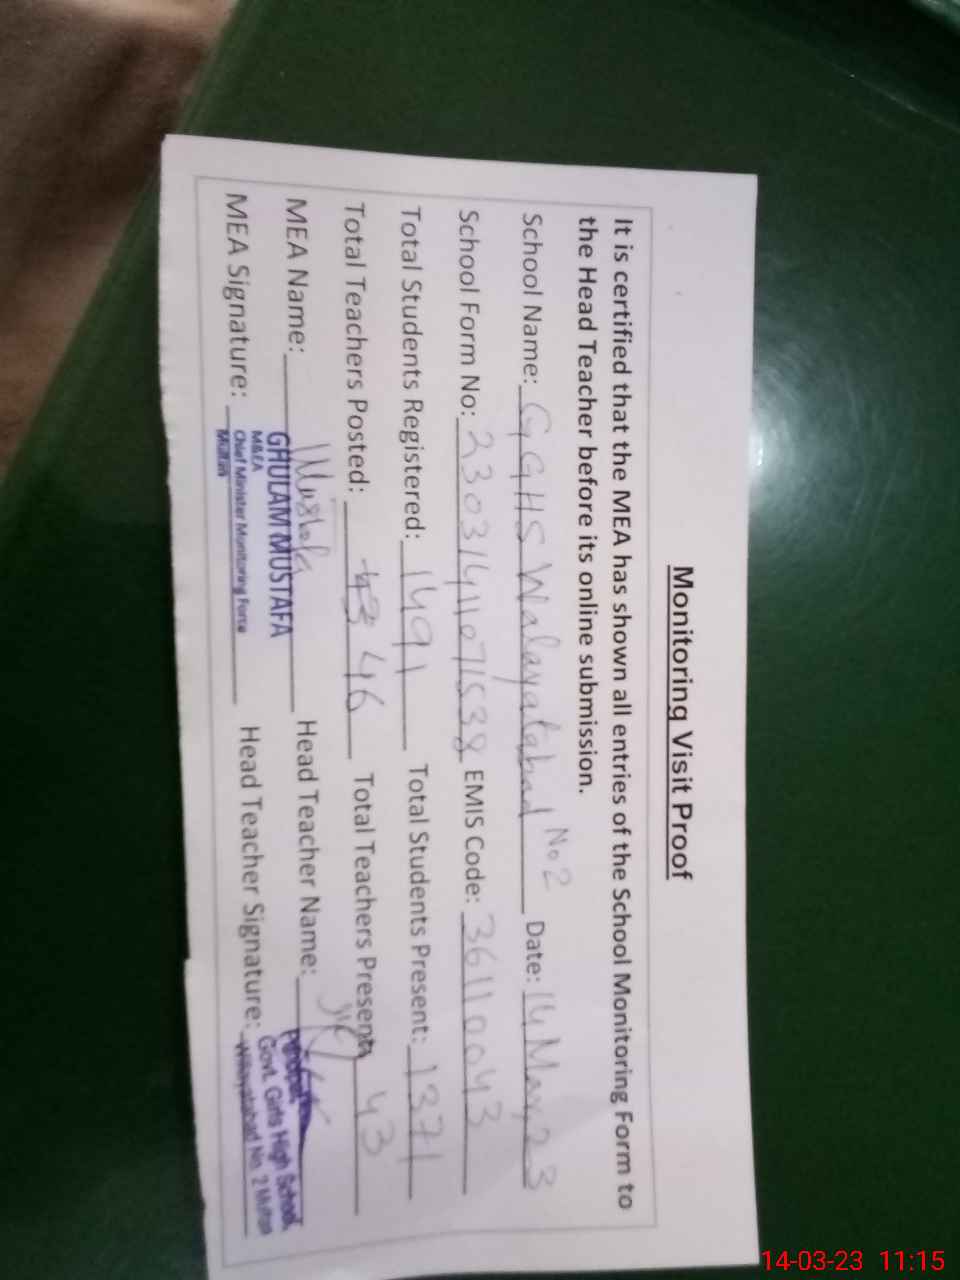 Monitoring Visit Proof
It is certified that the MEA has shown all entries of the School Monitoring Form to
the Head Teacher before its online submission.
School Name: GGHS Walayatabad No 2 Date: 14 Mar, 23
School Form No: 23031411071538 EMIS Code: 36110043
Total Students Registered: 1491 Total Students Present: 1371
Total Teachers Posted: 43 46 Total Teachers Present: 43
MEA Name: Mustafa Head Teacher Name:
GHULAM MUSTAFA
M&EA
Chief Minister Monitoring Force
Multan
MEA Signature: Head Teacher Signature:
Principal
Govt. Girls High School,
Wilayatabad No. 2 Multan
14-03-23 11:15